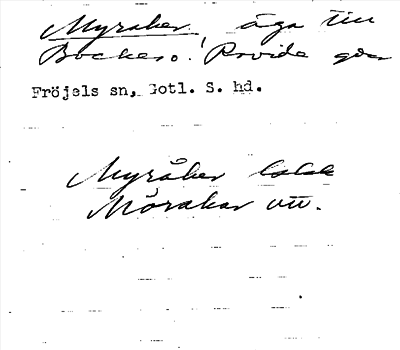 Myråker, äga till
Bockes o. Rovide gdr
Fröjels sn, Gotl. S. hd.
Myråker lokk
Mörakar utt.